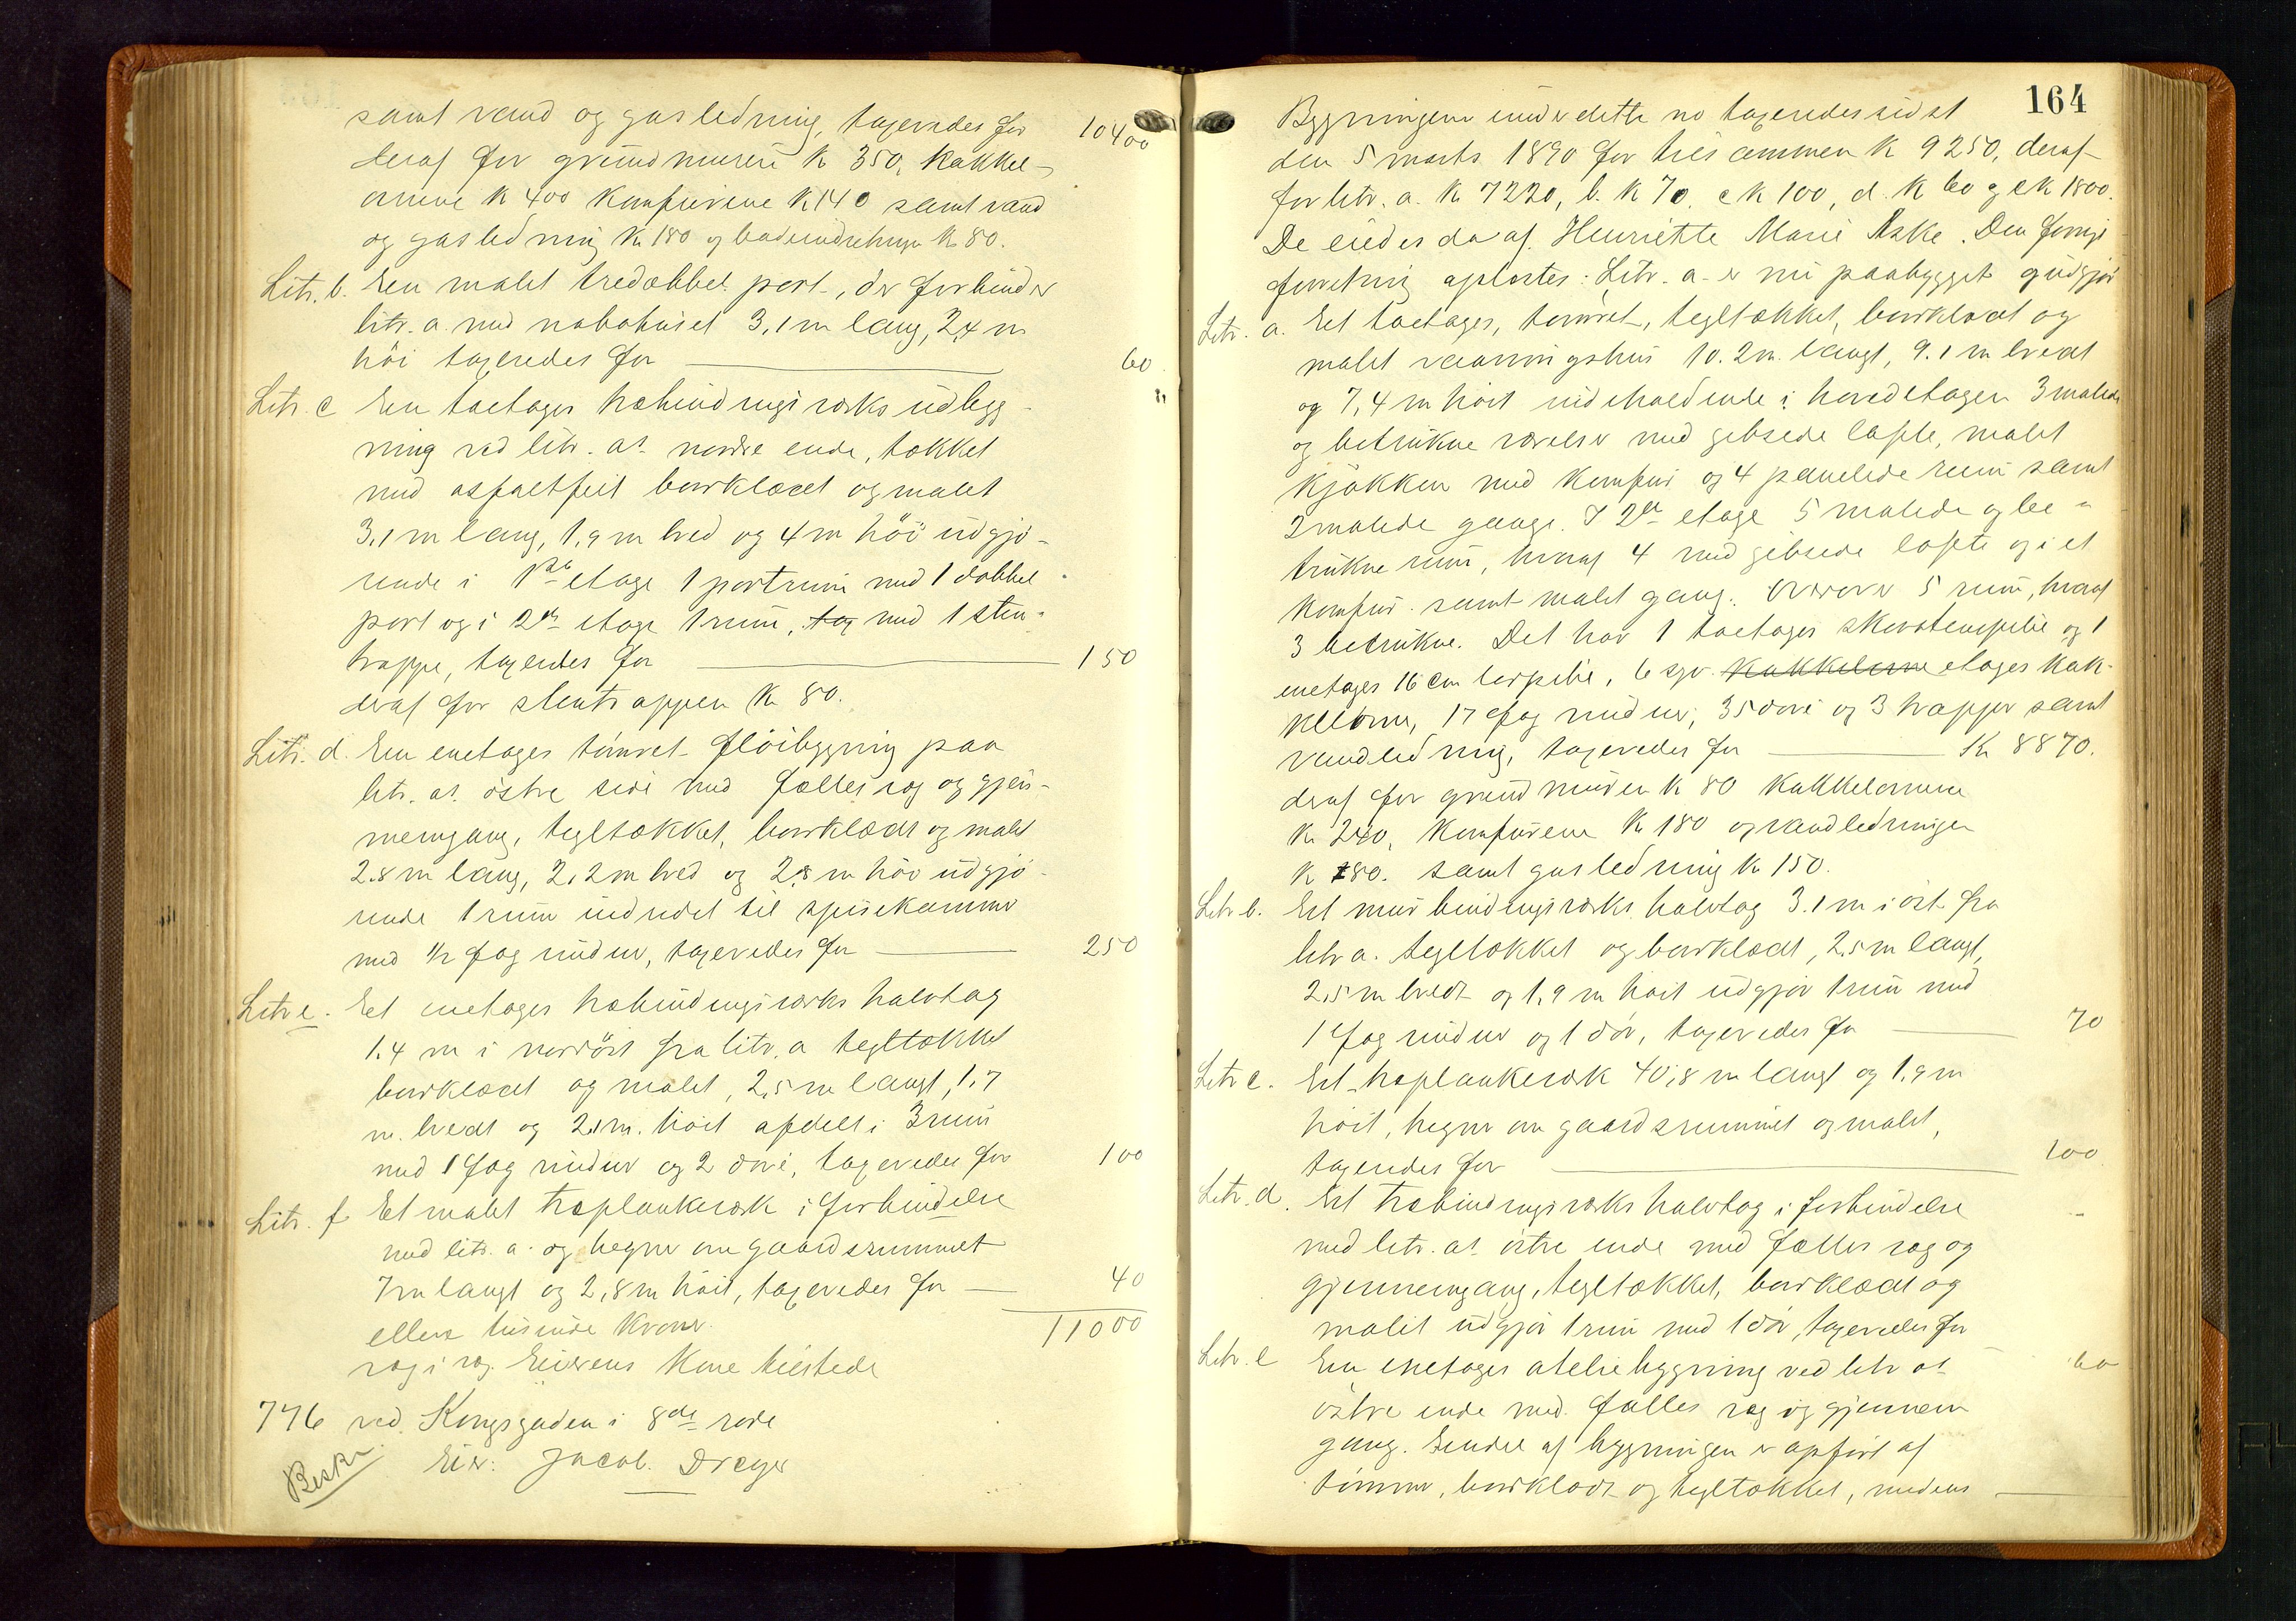 samt vand og gasledning, taxeredes for 10400
deraf for grundmuren K 350, Kakkel-
ovnene K 400 Komfurene K 140 samt vand
og gasledning K 180 og badeindretningen K 80.
Litr. b. En malet trædobbel port, der forbinder
litr. a. med nabohuset 3,1 m lang, 2,4 m
höi taxeredes for 60
Litr. c En toetages træbindingsværks udbyg-
ning ved litr. as nordre ende, tækket
med asfaltfilt bordklædt og malet
3,1 m lang, 1,9 m bred og 4 m höi udgjö-
rende i 1ste etage 1 portrum med 1 dobbel
port og i 2den etage 1 rum, tag med 1 sten-
trappe, taxeredes for 150
deraf for stentrappen K 80.
Litr. d. En enetages tömret flöibygning paa
litr. as östre side med fælles væg og gjen-
nemgang, tegltækket, bordklædt og malet
2.8 m lang, 2,2 m bred og 2,8 m höi udgjö-
rende 1 rum indredet til spisekammer
med 1/2 fag vinduer, taxeredes for 250
Litr e. Et enetages træbindingsværks halvtag
1.4 m i nordöst fra litr. a tegltækket
bordklædt og malet, 2,5 m langt, 1,7
m. bredt og 2,1 m. höit afdelt i 3 rum
med 1 fag vinduer og 2 döre, taxeredes for 100
Litr. f Et malet træplankeværk i forbindelse
med litr. a. og hegner om gaardsrummet
7 m langt og 2,8 m höit, taxeredes for 40
elleve tusinde Kroner. 11000
Eierens Kone tilstede
776 ved Kongsgaden i 8de rode
Beskr. Eier: Jacob Dreyer
164
Bygningerne under dette no taxeredes sidst
den 5 marts 1890 for tilsammen K 9250, deraf
for litr. a. K 7220, b. K 70, c K 100, d. K 60 og e K 1800.
De eiedes da af Henriette Marie Aske. Den forrige
forretning oplæstes: Litr. a. er nu paabygget og udgjör
Litr. a. Et toetages, tömret, tegltækket, bordklædt og
malet vaaningshus 10.2 m. langt, 9.1 m bredt
og 7,4 m höit indeholdende i hovedetagen 3 malede
og betrukne værelser med gibsede lofte, malet
Kjökken med Komfur og 4 panelede rum samt
2 malede gange. I 2den etage 5 malede og be-
trukne rum, hvoraf 4 med gibsede lofte og i et
Komfur samt malet gang. Ovenover 5 rum, hvoraf
3 betrukne. Det har 1 toetages skorstenspibe og 1
enetages 16 cm lerpibe, 6 Kakkelovne etages Kak-
kelovne, 17 fag vinduer, 35 döre og 3 trapper samt
vandledning, taxeredes for K 8870.
deraf for grundmuren K 80 Kakkelovnene
K 240, Komfurene K 180 og vandledningen
K 80. samt gasledning K 150.
Litr b. Et mur bindingsværks halvtag 3.1 m i öst fra
litr a. tegltækket og bordklædt, 2,5 m langt,
2,5 m bredt og 1,9 m höit udgjör 1 rum med
1 fag vinduer og 1 dör, taxeredes for 70
Litr c. Et træplankeværk 40,8 m langt og 1,9 m
höit, hegner om gaardsrummet og malet,
taxeredes for 100
Litr. d. Et træbindingsværks halvtag i forbindelse
med litr. as östre ende med fælles væg og
gjennemgang, tegltækket, bordklædt og
malet udgjör 1 rum med 1 dör, taxeredes for 60
Litr. e En enetages ateliebygning ved litr as
östre ende med fælles væg og gjennem
gang. Endel af bygningen er opfört af
tömmer, bordklædt og tegltækket, medens